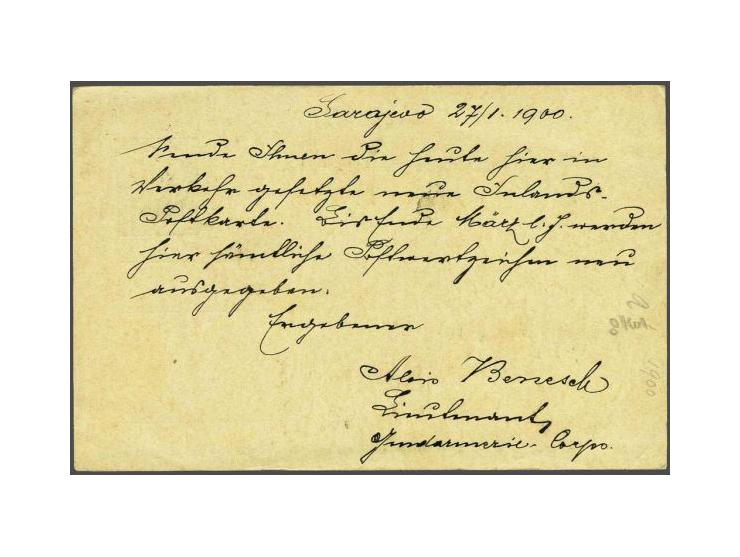 Sarajevo 27/1. 1900.
Sende Ihnen die heute hier in
Verkehr gesetzte neue Inlands-
Postkarte. Bis Ende März l. J. werden
hier sämtliche Postwertzeichen neu
ausgegeben.
Ergebener
Alois Benesch
Lieutenant
Gendarmerie-Corps.
1900